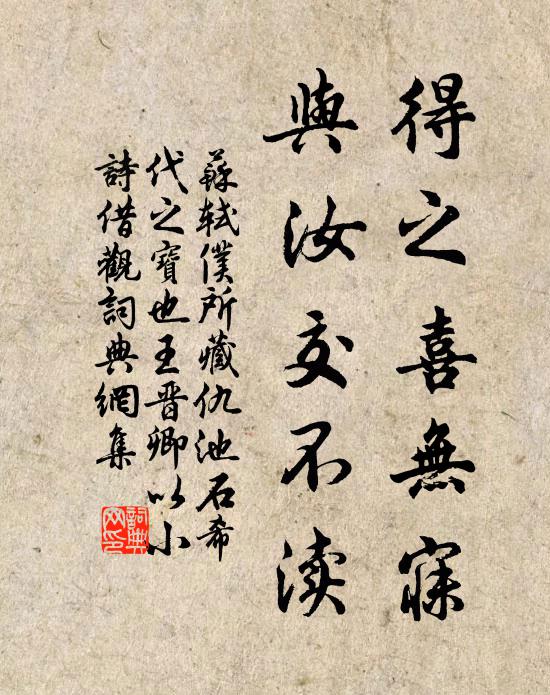 得之喜無寐
與汝交不渎
蘇軾僕所藏仇池石希
代之寶也王晋卿以小
詩借觀詞典網集
詞典网印